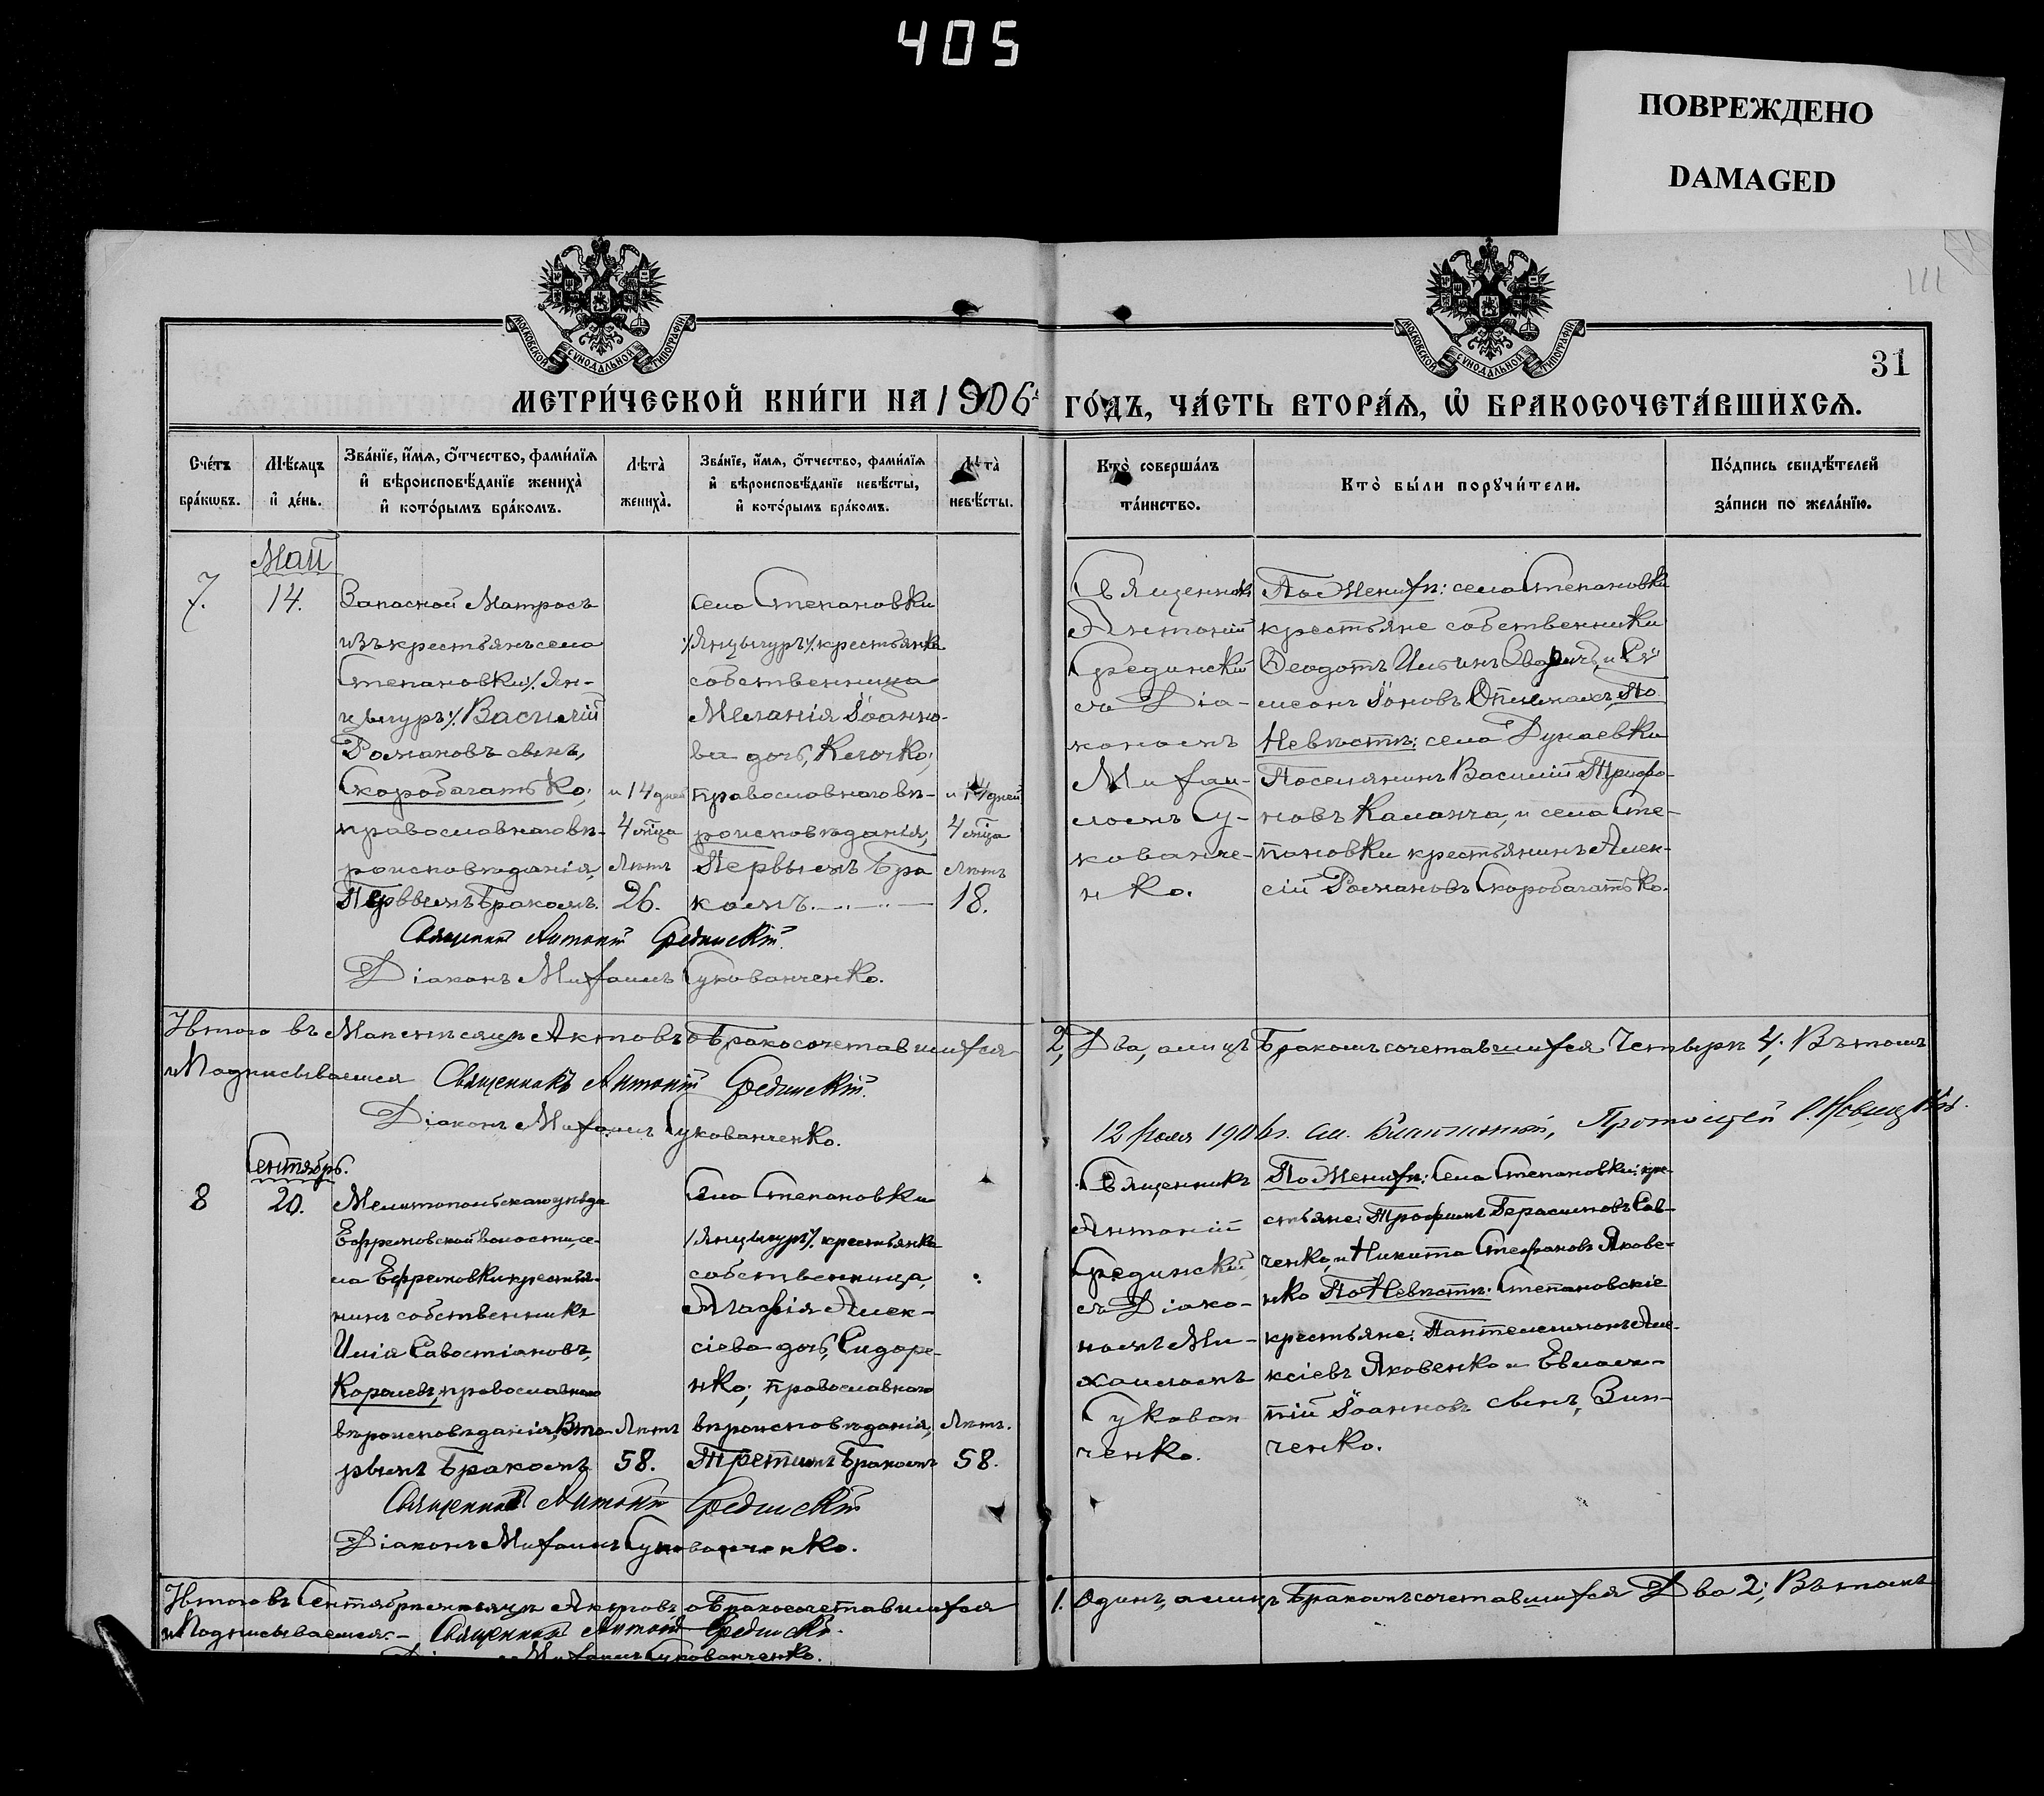 405
ПОВРЕЖДЕНО
DAMAGED
111
МОСКОВСКОЙ СѴНОДАЛЬНОЙ ТИПОГРАФІИ
МОСКОВСКОЙ СѴНОДАЛЬНОЙ ТИПОГРАФІИ
31
МЕТРИ́ЧЕСКОЙ КНИ́ГИ НА 1906 ГО́ДЪ, ЧА́СТЬ ВТОРА́Ѧ, Ѿ БРАКОСОЧЕТА́ВШИХСѦ.
Сче́тъ
бра́кѡвъ.
Мѣ́сѧцъ
и҆ де́нь.
Зва́нїе, и҆́мѧ, ѻ҆́тчество, фами́лїѧ
и҆ вѣроисповѣ́данїе жениха̀
и҆ кото́рымъ бра́комъ.
Лѣ́та
жениха̀.
Зва́нїе, и҆́мѧ, ѻ҆́тчество, фами́лїѧ
и҆ вѣроисповѣ́данїе невѣ́сты,
и҆ кото́рымъ бра́комъ.
Лѣ́та
невѣ́сты.
Кто̀ соверша́лъ
та́инство.
Кто̀ бы́ли порꙋчи́тели.
По́дпись свидѣ́телей
за́писи по жела́нїю.
Май
7.
14.
Запасной Матросъ
изъ крестьянъ села
Степановки /. Ян-
цыгуръ /. Василій
Романовъ сынъ,
Скоробагатько;
православнаго вѣ-
роисповѣданія,
Первымъ бракомъ.
и 14 дней
4 мѣца
Лѣтъ
26.
села Степановки
/. Янцыгуръ /. крестьянка
собственница
Меланія Іоанно-
ва дочь, Клочко;
православнаго вѣ-
роисповѣданія,
Первымъ Бра
комъ.
и 14 дней
4 мѣца
Лѣтъ
18.
Священникъ
Антоній
Срединскій
съ Діа-
кономъ
Миха-
ломъ Су-
кованче-
нко.
По Женихѣ: села Степановки
крестьяне собственники
Ѳеодотъ Ильинъ и
Іоновъ По
Невѣстѣ: села Дунаевки
Поселянинъ Василій Трифо-
новъ Каланча, и села Сте-
пановки крестьянинъ Алек-
сій Романовъ Скоробагатько.
Священникъ Антоній Срединскій.
Діаконъ Михаилъ Сукованченко.
Итого въ Маѣ мѣсяцѣ Актовъ о Бракосочетавшихся
2, Два, а лицъ Бракомъ сочетавшихся Четыре 4; Въ томъ
и Подписываемся Священникъ Антоній Срединскій.
Діаконъ Михаилъ Сукованченко.
12 Іюля 1906 г. См. Благочинный, Протоіерей
Сентябрь.
8
20.
Мелитопольскаго уѣзда
Ефремовской волости, се-
ла Ефремовки крестья-
нинъ собственникъ
Илія Савостіановъ,
Королевъ, православнаго
вѣроисповѣданія, Вто-
рымъ Бракомъ
Лѣтъ
58.
Села Степановки
/. Янцыгуръ /. крестьянка
собственница,
Агафія Алек-
сіева дочь, Сидоре-
нко; православнаго
вѣроисповѣданія,
Третимъ Бракомъ
Лѣтъ.
58.
Священникъ
Антоній
Срединскій,
съ Діако-
номъ Ми-
хаиломъ
Сукован
ченко.
По Женихѣ: Села Степановки: кре-
стьяне: Трофимъ Герасимовъ Сав-
ченко, и Никита Стефановъ Якове-
нко По Невѣстѣ: Степановскіе
крестьяне: Пантелеимонъ Але-
ксіевъ Яковенко и Евлам-
пій Іоанновъ сынъ, Вин-
ченко.
Священникъ Антоній Срединскій
Діаконъ Михаилъ Сукованченко.
Итого въ Сентябрѣ мѣсяцѣ Актовъ о Бракосочетавшихся
1. Одинъ, а лицъ Бракомъ сочетавшихся Два 2; Въ томъ
и Подписываемся:- Священникъ Антоній Срединскій.
Діаконъ Михаилъ Сукованченко.